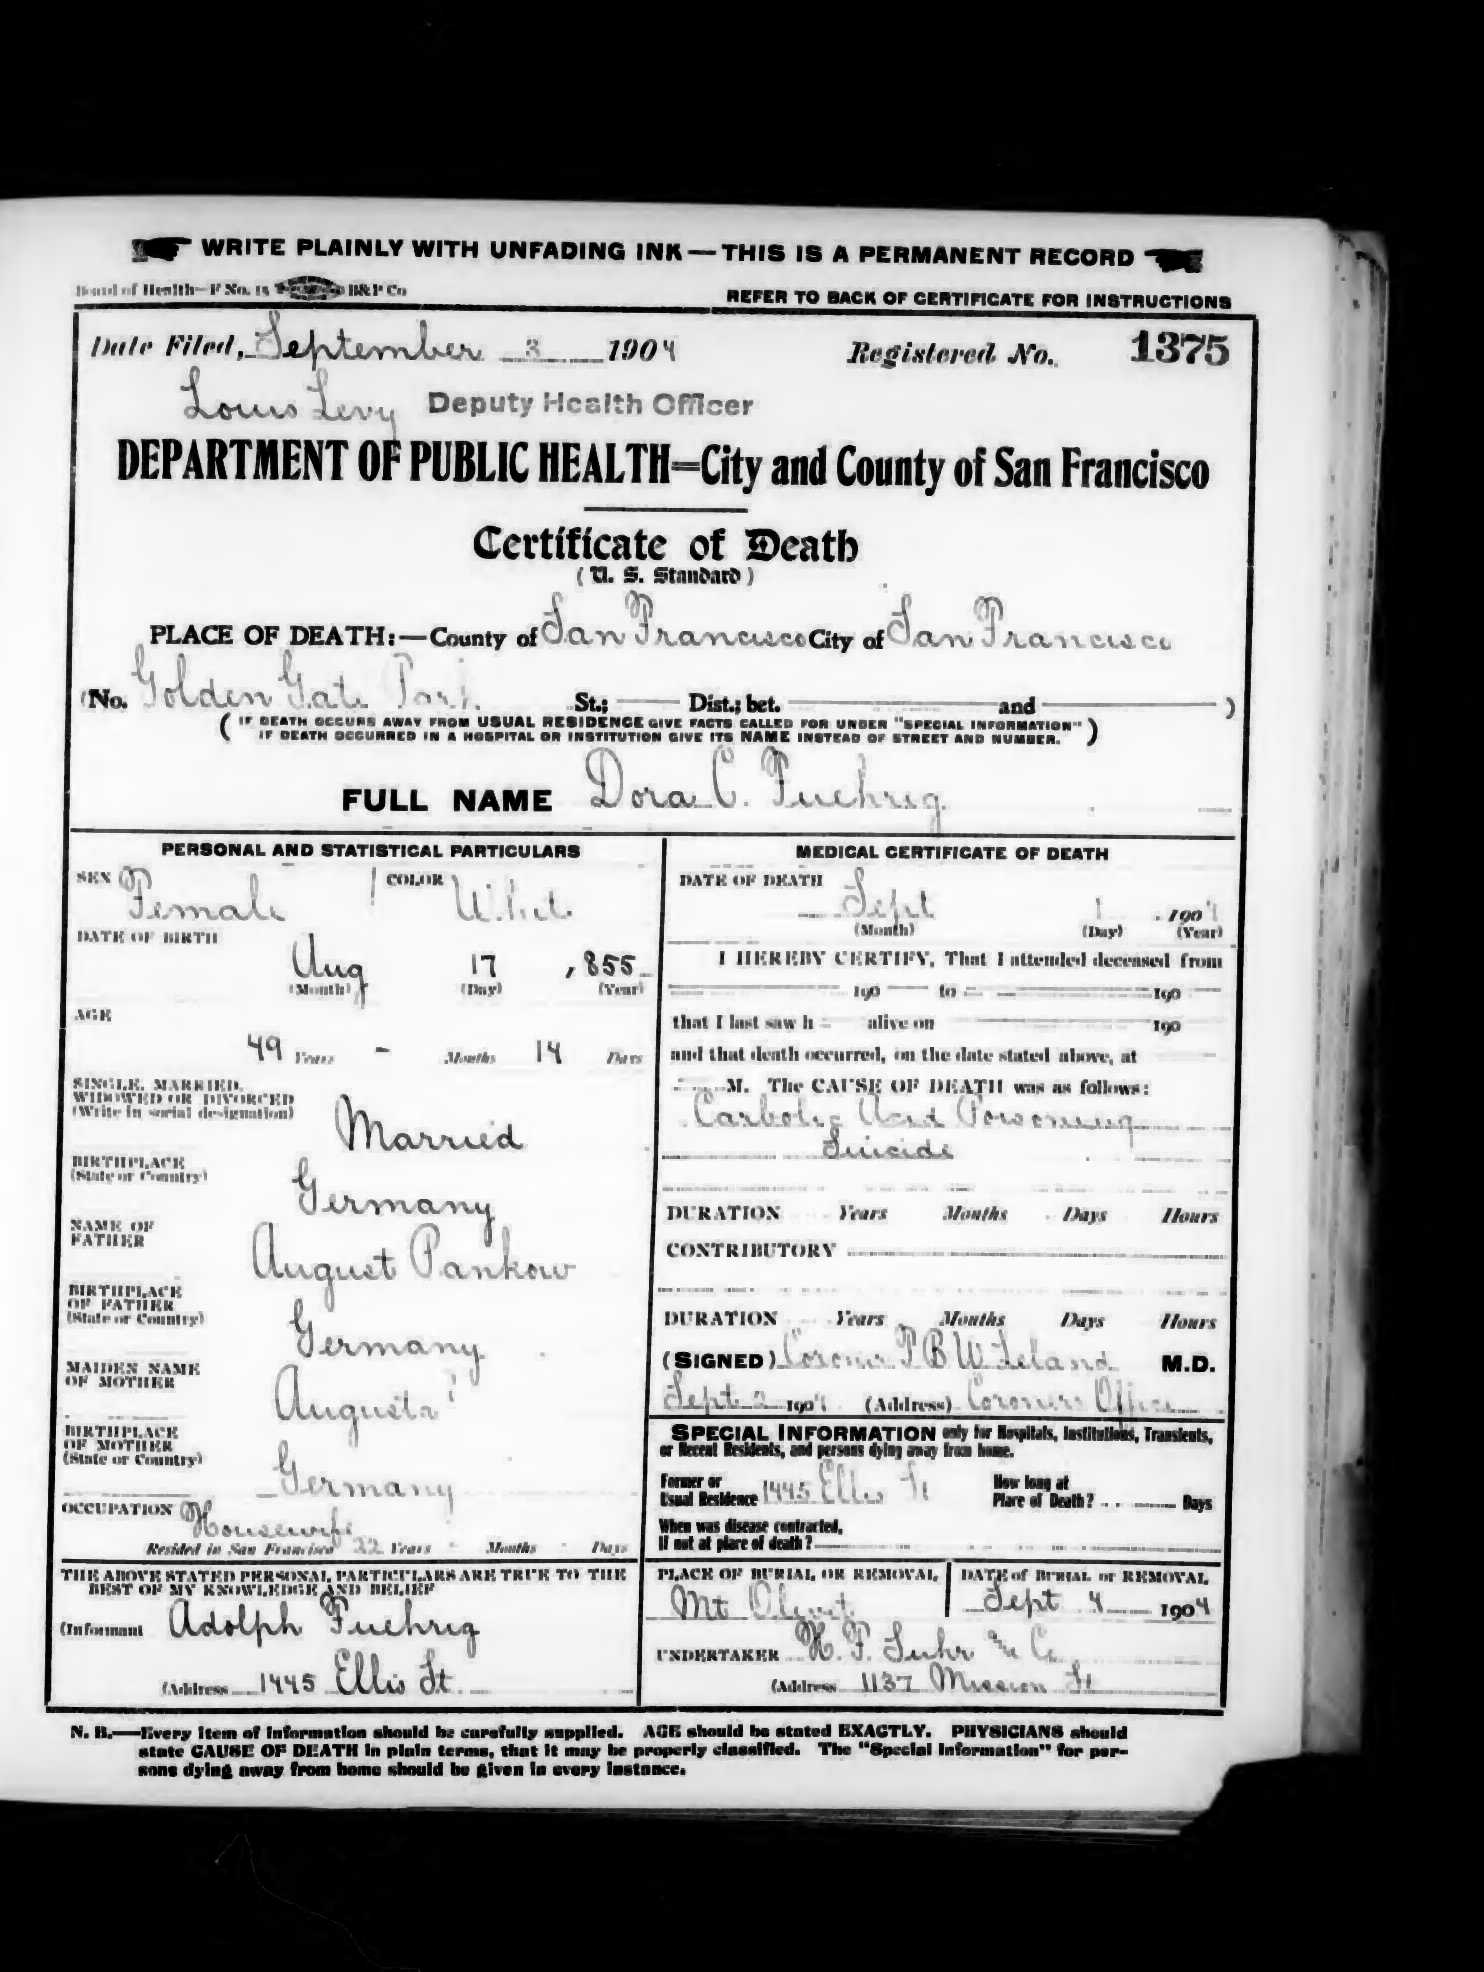 WRITE PLAINLY WITH UNFADING INK — THIS IS A PERMANENT RECORD
Board of Health—F No. 15 B&P Co
REFER TO BACK OF CERTIFICATE FOR INSTRUCTIONS
Date Filed, September 3 1904 Registered No. 1375
Louis Levy Deputy Health Officer
DEPARTMENT OF PUBLIC HEALTH=City and County of San Francisco
Certificate of Death
(U. S. Standard)
PLACE OF DEATH:—County of San Francisco City of San Francisco
(No. Golden Gate Park St.; Dist.; bet. and )
(IF DEATH OCCURS AWAY FROM USUAL RESIDENCE GIVE FACTS CALLED FOR UNDER "SPECIAL INFORMATION"
IF DEATH OCCURRED IN A HOSPITAL OR INSTITUTION GIVE ITS NAME INSTEAD OF STREET AND NUMBER.)
FULL NAME Dora C. Fuehrig
PERSONAL AND STATISTICAL PARTICULARS
SEX Female COLOR White
DATE OF BIRTH
Aug 17 , 855
(Month) (Day) (Year)
AGE
49 Years - Months 14 Days
SINGLE, MARRIED,
WIDOWED OR DIVORCED
(Write in social designation)
Married
BIRTHPLACE
(State or Country)
Germany
NAME OF
FATHER
August Pankow
BIRTHPLACE
OF FATHER
(State or Country)
Germany
MAIDEN NAME
OF MOTHER
Augusta ?
BIRTHPLACE
OF MOTHER
(State or Country)
Germany
OCCUPATION Housewife
Resided in San Francisco 22 Years - Months - Days
THE ABOVE STATED PERSONAL PARTICULARS ARE TRUE TO THE
BEST OF MY KNOWLEDGE AND BELIEF
(Informant Adolph Fuehrig
(Address 1445 Ellis St
MEDICAL CERTIFICATE OF DEATH
DATE OF DEATH
Sept 1 , 1904
(Month) (Day) (Year)
I HEREBY CERTIFY, That I attended deceased from
190 to 190
that I last saw h alive on 190
and that death occurred, on the date stated above, at
M. The CAUSE OF DEATH was as follows:
Carbolic Acid Poisoning
Suicide
DURATION Years Months Days Hours
CONTRIBUTORY
DURATION Years Months Days Hours
(SIGNED) Coroner T B W Leland M.D.
Sept 2 1904 (Address) Coroners Office
SPECIAL INFORMATION only for Hospitals, Institutions, Transients,
or Recent Residents, and persons dying away from home.
Former or
Usual Residence 1445 Ellis St
How long at
Place of Death? Days
When was disease contracted,
If not at place of death?
PLACE OF BURIAL OR REMOVAL
Mt Olivet
DATE of BURIAL or REMOVAL
Sept 4 1904
UNDERTAKER H. F. Suhr & Co
(Address 1137 Mission St
N. B.—Every item of information should be carefully supplied. AGE should be stated EXACTLY. PHYSICIANS should
state CAUSE OF DEATH in plain terms, that it may be properly classified. The "Special Information" for per-
sons dying away from home should be given in every instance.